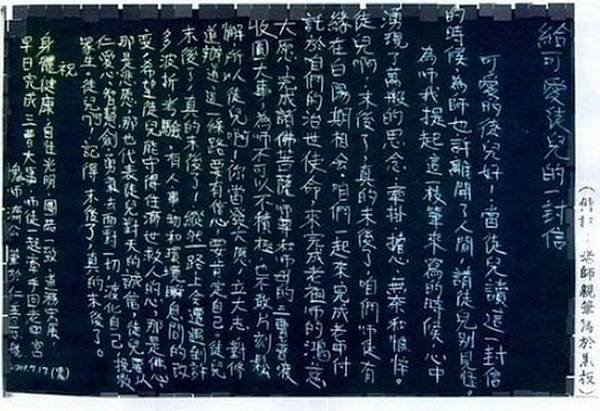 （備註：老師親筆寫於黑板）
給可愛徒兒的一封信
可愛的徒兒好！當徒兒讀這一封信
的時候，為師也許離開了人間，請徒兒別見怪。
為師我提起這一枝筆來寫的時候，心中
湧現了萬般的思念、牽掛、擔心、無奈和憔悴。
徒兒啊！末後了，真的末後了，咱們師徒有
緣在白陽期相會，咱們一起來完成老付
託於咱們的治世使命，來完成老祖師的鴻慈
大愿，完成諸佛菩薩、師尊和師母的三曹普渡
收圓大事，為師不可以不積極，也不敢片刻鬆
懈，所以徒兒啊！你當發心愿，立大志，對修
道辦道這一條路要有信心，要肯定自己。徒兒
末後了，真的末後了，縱然一路上會遭遇到許
多波折考驗，有人事物和環境瞬息間的改
變，希望徒兒能守得住濟世救人的心，那是佛心
那是悲愿，那也代表徒兒對天的誠信，徒兒要以
仁愛心、智慧劍、勇氣去面對一切，渡化自己、拯救
眾生。徒兒啊！記得，末後了，真的末後了。
祝
身體健康，自性光明，圓品一致，道務宏展，
早日完成三曹大事，師徒一起牽手回老宮
愚師 濟公 筆於仁
7.17